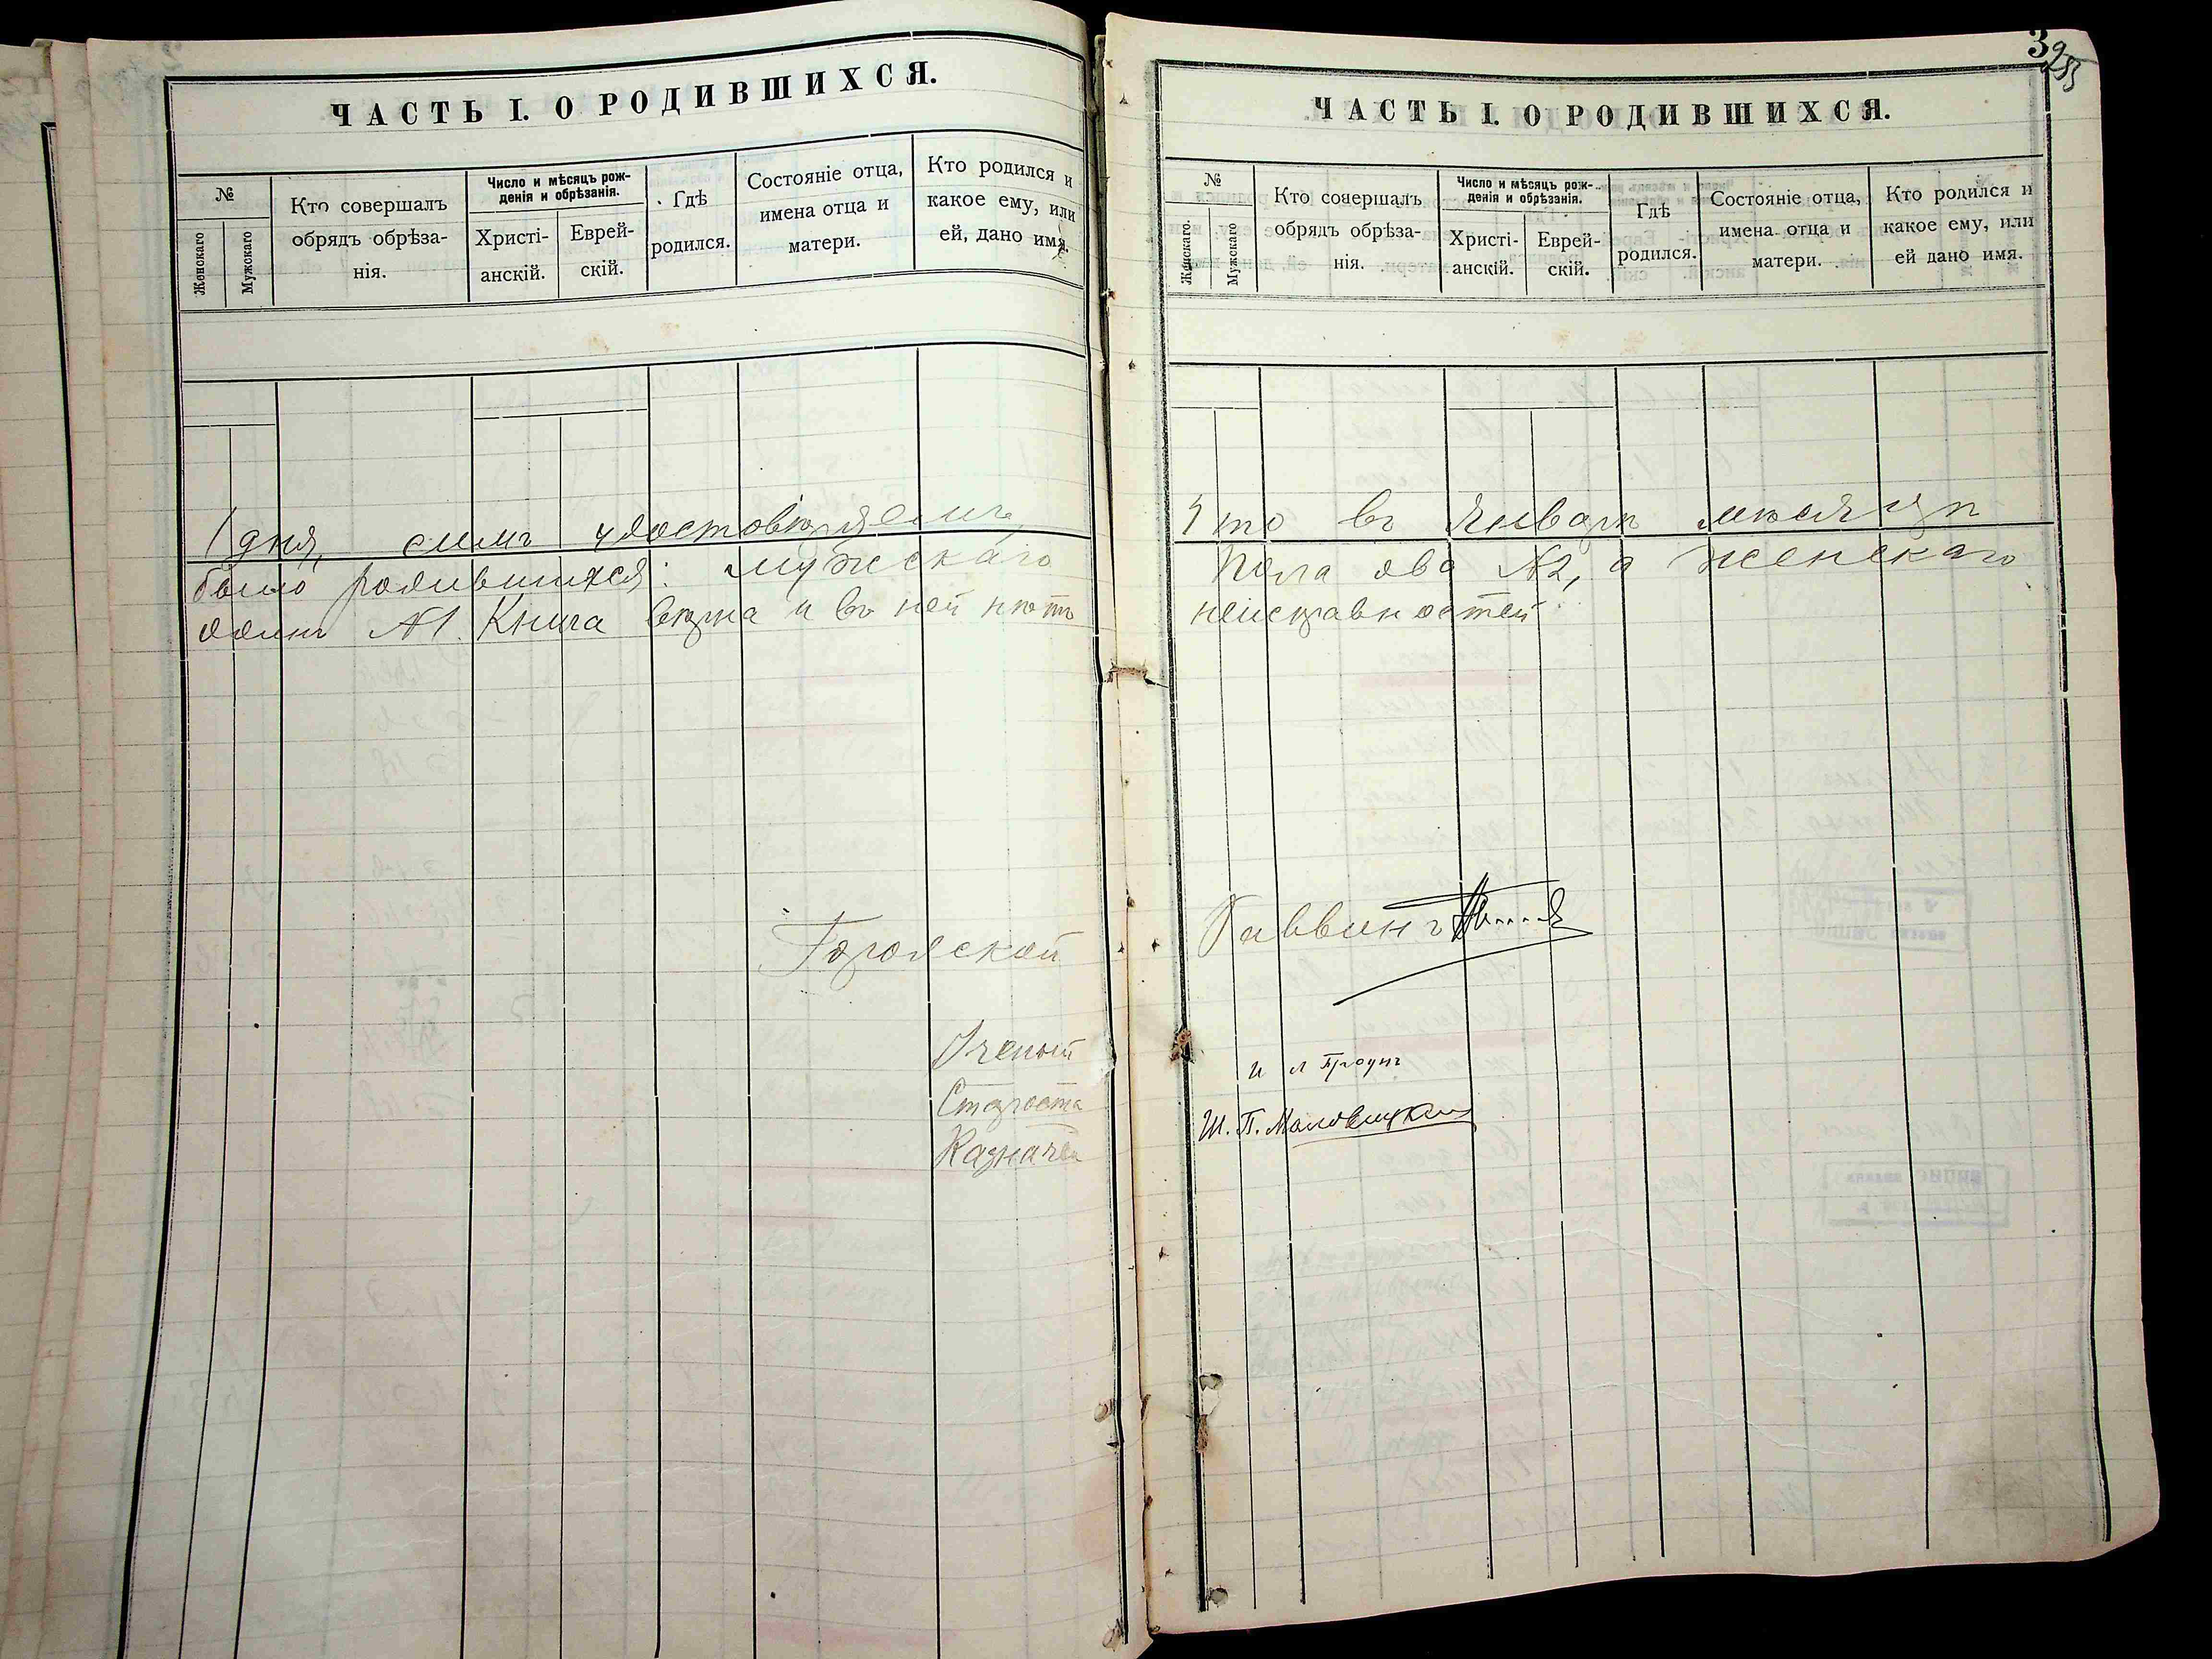 ЧАСТЬ I. О РОДИВШИХСЯ.
№
Женскаго
Мужскаго
Кто совершалъ
обрядъ обрѣза-
нія.
Число и мѣсяцъ рож-
денія и обрѣзанія.
Христі-
анскій.
Еврей-
скій.
Гдѣ
родился.
Состояніе отца,
имена отца и
матери.
Кто родился и
какое ему, или
ей, дано имя.
1 дня, симъ удостовѣряемъ,
было родившихся: мужскаго
одинъ №1. Книга вѣрна и въ ней нѣтъ
Городской
Ученый
Староста
Казначей
3
ЧАСТЬ I. О РОДИВШИХСЯ.
№
Женскаго.
Мужскаго
Кто совершалъ
обрядъ обрѣза-
нія.
Число и мѣсяцъ рож-
денія и обрѣзанія.
Христі-
анскій.
Еврей-
скій.
Гдѣ
родился.
Состояніе отца,
имена отца и
матери.
Кто родился и
какое ему, или
ей дано имя.
Что въ Январѣ мѣсяцѣ
пола два №2, а женскаго
неисправностей
Раввинъ
И Л
Ш. П.